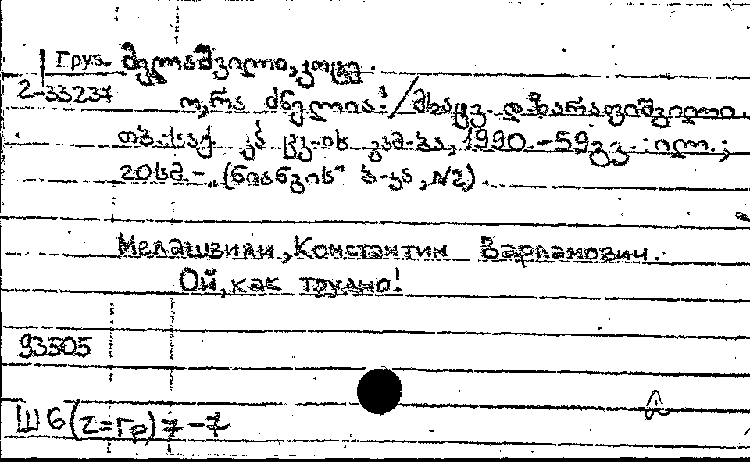 Груз. მელაშვილი, კოტე.
2-33237
ო, რა ძნელია! / მხატვ. დ. ზარაფიშვილი.
თბ.: საქ. კპ ცკ-ის გამ-ბა, 1990. - 59 გვ. : ილ. ;
20 სმ. - („ნიანგის“ ბ-კა, №2).
Мелашвили, Константин Варламович.
Ой, как трудно!
93505
Ш6(2=Гр)7-7